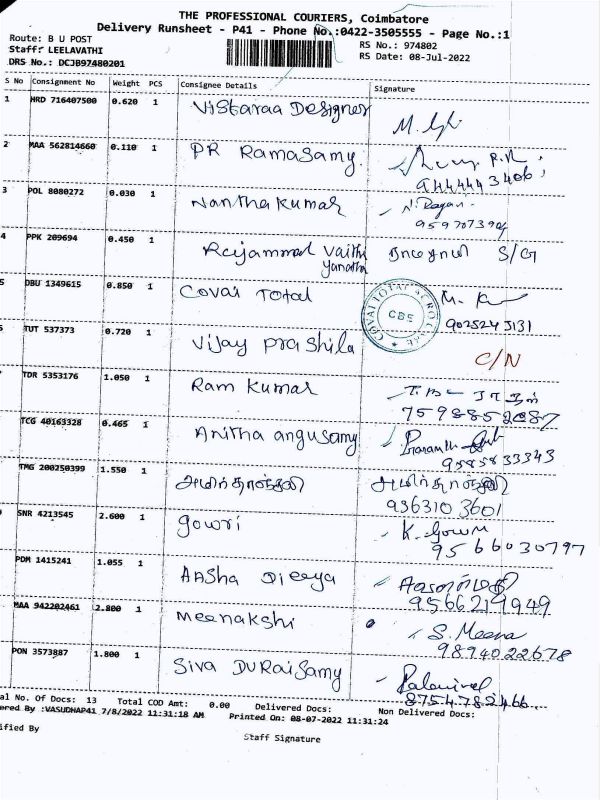 THE PROFESSIONAL COURIERS, Coimbatore
Delivery Runsheet - P41 - Phone No.:0422-3505555 - Page No.:1
Route: B U POST
RS No.: 974802
Staff: LEELAVATHI
RS Date: 08-Jul-2022
DRS No.: DCJB97480201
S No Consignment No Weight PCS Consignee Details Signature
1 HRD 716407500 0.620 1 Vistaraa Designer
2 MAA 562814660 0.110 1 PR Ramasamy.
9444443406
3 POL 8080272 0.030 1 Nantha kumar N. Ragan
4 PPK 209694 0.450 1 Raijammal Vaithi S/G
Yanatha
5 DBU 1349615 0.850 1 Covai Total M. K
COVAI TOTAL CBE
9025243131
6 TUT 537373 0.720 1 Vijay prashila C/N
TDR 5353176 1.050 1 Ram kumar
7598852087
TCG 40163328 0.465 1 Anitha angusamy
9585833343
TMG 200250399 1.550 1
9363103601
SNR 4213545 2.600 1 gowri K. Gowri
9566030797
PDM 1415241 1.055 1 Aasha Dieeya
9566219949
MAA 942202461 2.800 1 meenakshi S. Meena
9894022678
PON 3573887 1.800 1 Siva DURaiSamy Palanivel
8754782466
al No. Of Docs: 13 Total COD Amt: 0.00 Delivered Docs: Non Delivered Docs:
ered By :VASUDHAP41 7/8/2022 11:31:18 AM Printed On: 08-07-2022 11:31:24
ified By
Staff Signature